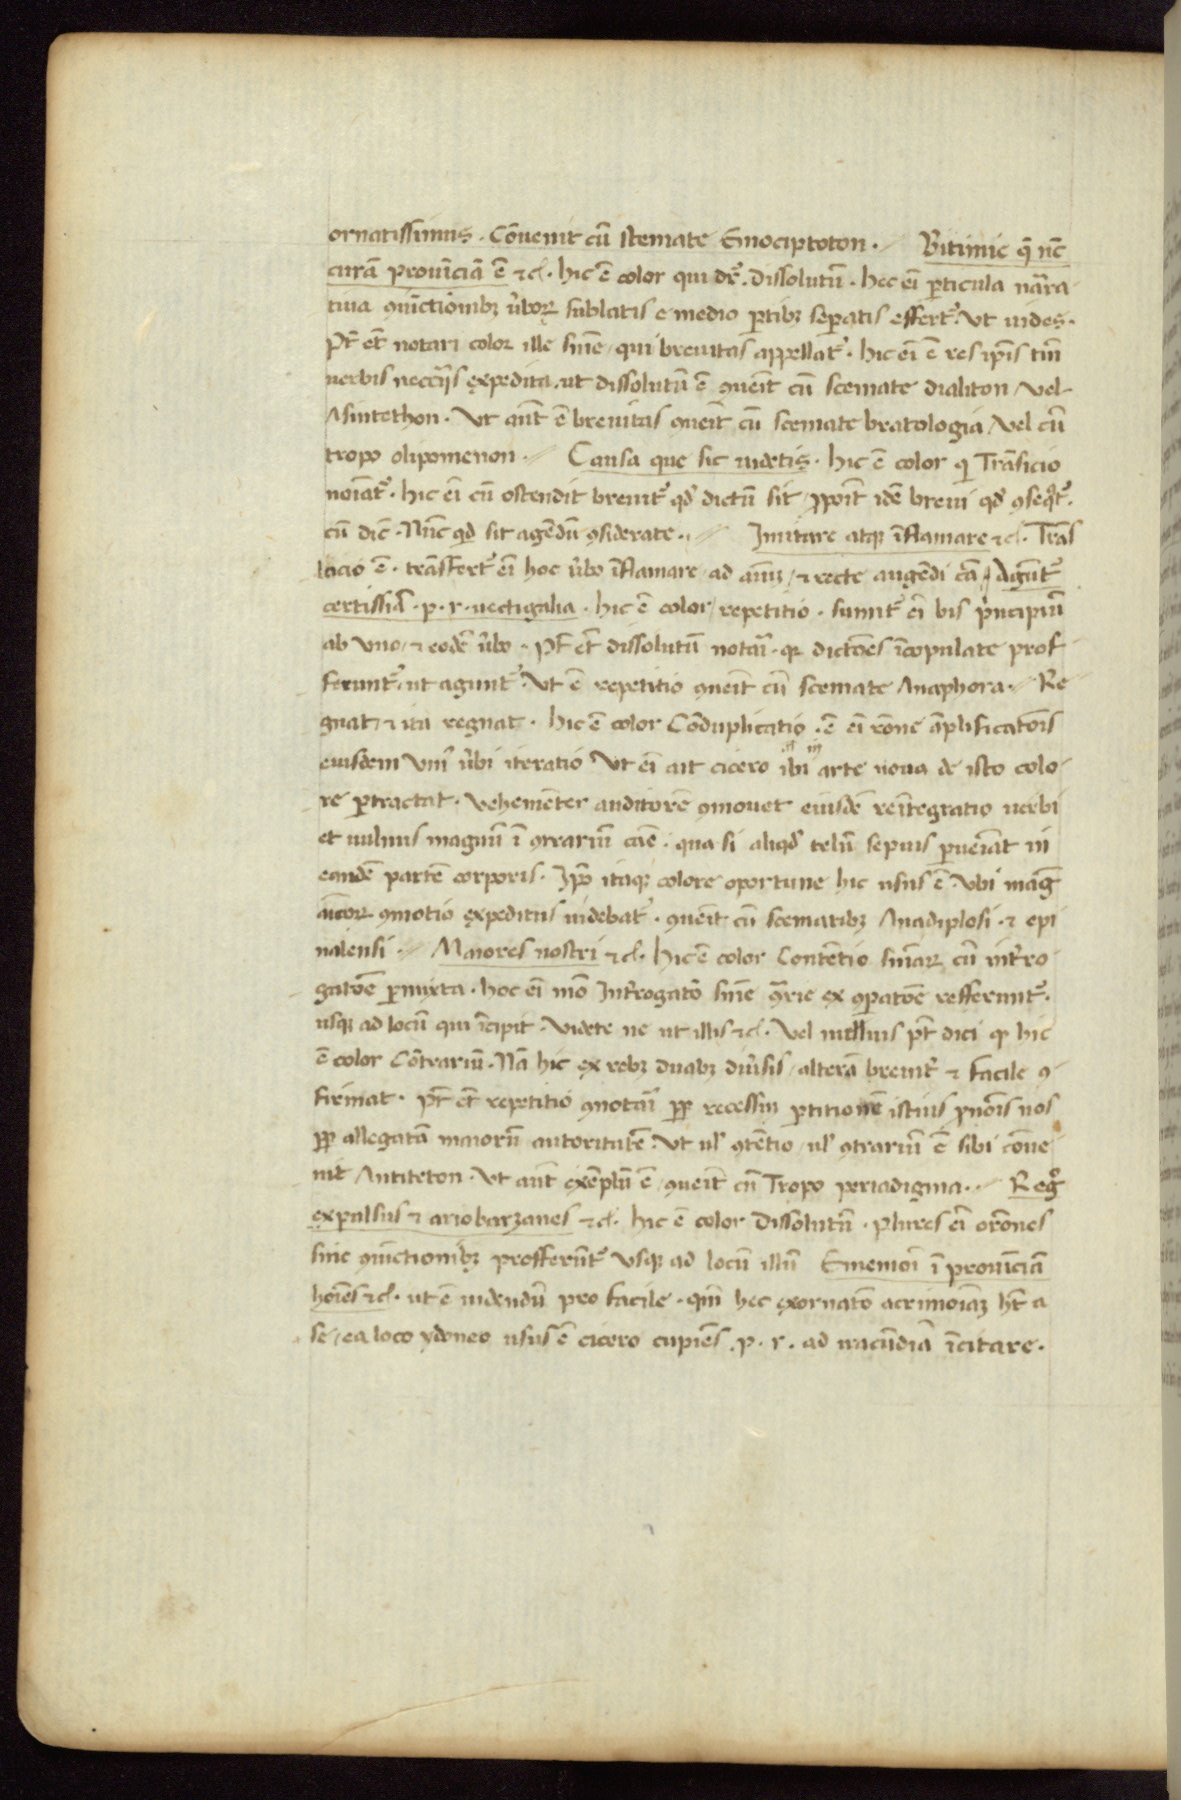 ornatissimus . Cōuenit cū stemate Emociptoton . Bitimie q̄ nc̄
curā prouīciā ē ⁊c̄ . hic ē color qui dr̄ . dissolutū . hec eī perticula nār̄a
tiua ꝯiūctiōnibꝫ ūboꝝ sublatis e medio ꝑtibꝫ seꝑatis effert᷑ . Vt uides .
Pt̄ et̄ notari color ille sīne / qui breuitas appellat᷑ . hic eī ē res ip̄is tm̄
uerbis neccr̄ijs expedita . ut dissolutū ē ꝯueīt cū scemate dialiton / vel
Asintethon . Vt aut̄ ē breuitas ꝯueīt cū scemate bratologia / vel cū
tropo olipomenon . Causa que sic uidetis . hic ē color qi Trāsicio
noīat᷑ . hic eī cū ostendit breuit᷑ qd̄ dictū sit / ꝓpoīt idē breui qd̄ ꝯseqt᷑ .
cū dic̄ . Nūc qd̄ sit agēdū ꝯsiderate . Imitare atqꝫ īflamare ⁊c̄ . Trās
lacio ē . trāsfert᷑ eī hoc ūbo īflamare / ad aīuꝫ / ⁊ recte augēdi cā / Agūt᷑
certissīa . p . r . uectigalia . hic ē color / repetitio . sumit᷑ eī bis p̄ncipiū
ab vno / ⁊ eodē ūbo . Pt̄ et̄ dissolutū notār̄ . qꝛ dictōes īcopulate prof
ferunt᷑ . ut agunt᷑ . Vt ē repetitio ꝯueīt cū scemate Anaphora . Re
gnat ⁊ ita regnat . hic ē color Cōduplicatio . ē eī rōne āplificatōis
eiusdem vniꝰ ūbi iteratio Vt eī ait cicero ibi arte noua de isto colo
re ꝑtractat . Vehemēter auditorē ꝯmouet eiusdē reītegratio uerbi
et uulnus magnū ī ꝯtrariū cāe . qua si aliqd̄ telū sepius ꝑueīat in
eandē partē corporis . Ip̄o itaqꝫ colore oportune hic usus ē . vbi mag
aīoꝝ ꝯmotio expeditus uidebat᷑ . ꝯueīt cū scematibꝫ Anadiplosi . ⁊ epi
nalensi . Maiores nostri ⁊c̄ . hic ē color Contētio sn̄iaꝝ cū int̄ro
gatōe ꝑmixta . hoc eī mō Int̄rogatō sīne ex ꝯꝑatōe refferunt᷑ .
usqꝫ ad locū qui īcipit . Videte ne ut illis ⁊c̄ . Vel melius pt̄ dici qꝫ hic
ē color Cōtrariū . Nā hic ex rebꝫ duabꝫ diūsis / alterā breuit᷑ ⁊ facile ꝯ
firmat . Pt̄ et̄ repetitio ꝯnotār̄ ꝓp̄ recessū ꝑtitionē istius ꝓnoīs nos
ꝓp̄ allegatā maiorū autoritatē . Vt ul̄ ꝯtētio / ul̄ ꝯtrariū ē sibi cōue
nit Antiteton . Vt aut̄ exēplū ē / ꝯueīt cū Tropo periadigma . Reg̊
expulsus ⁊ ariobarzanes ⁊c̄ . hic ē color Dissolutū . plures eī orōnes
sine ꝯiūctionibꝫ profferūt᷑ vsqꝫ ad locū illū Ememoī ī prouīciā
hoīes ⁊c̄ . ut ē uidendū pro facile . qm̄ hec exornatō acrimoīaꝫ ht̄ ī
se / ea loco ydoneo usus ē cicero cupiēs . p . r . ad iracūdiā īcitare .